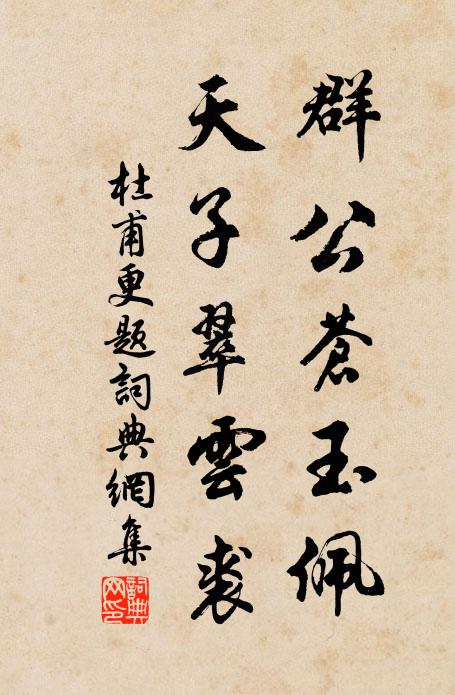 群公蒼玉佩
天子翠雲裘
杜甫更題詞典網集
詞典网印